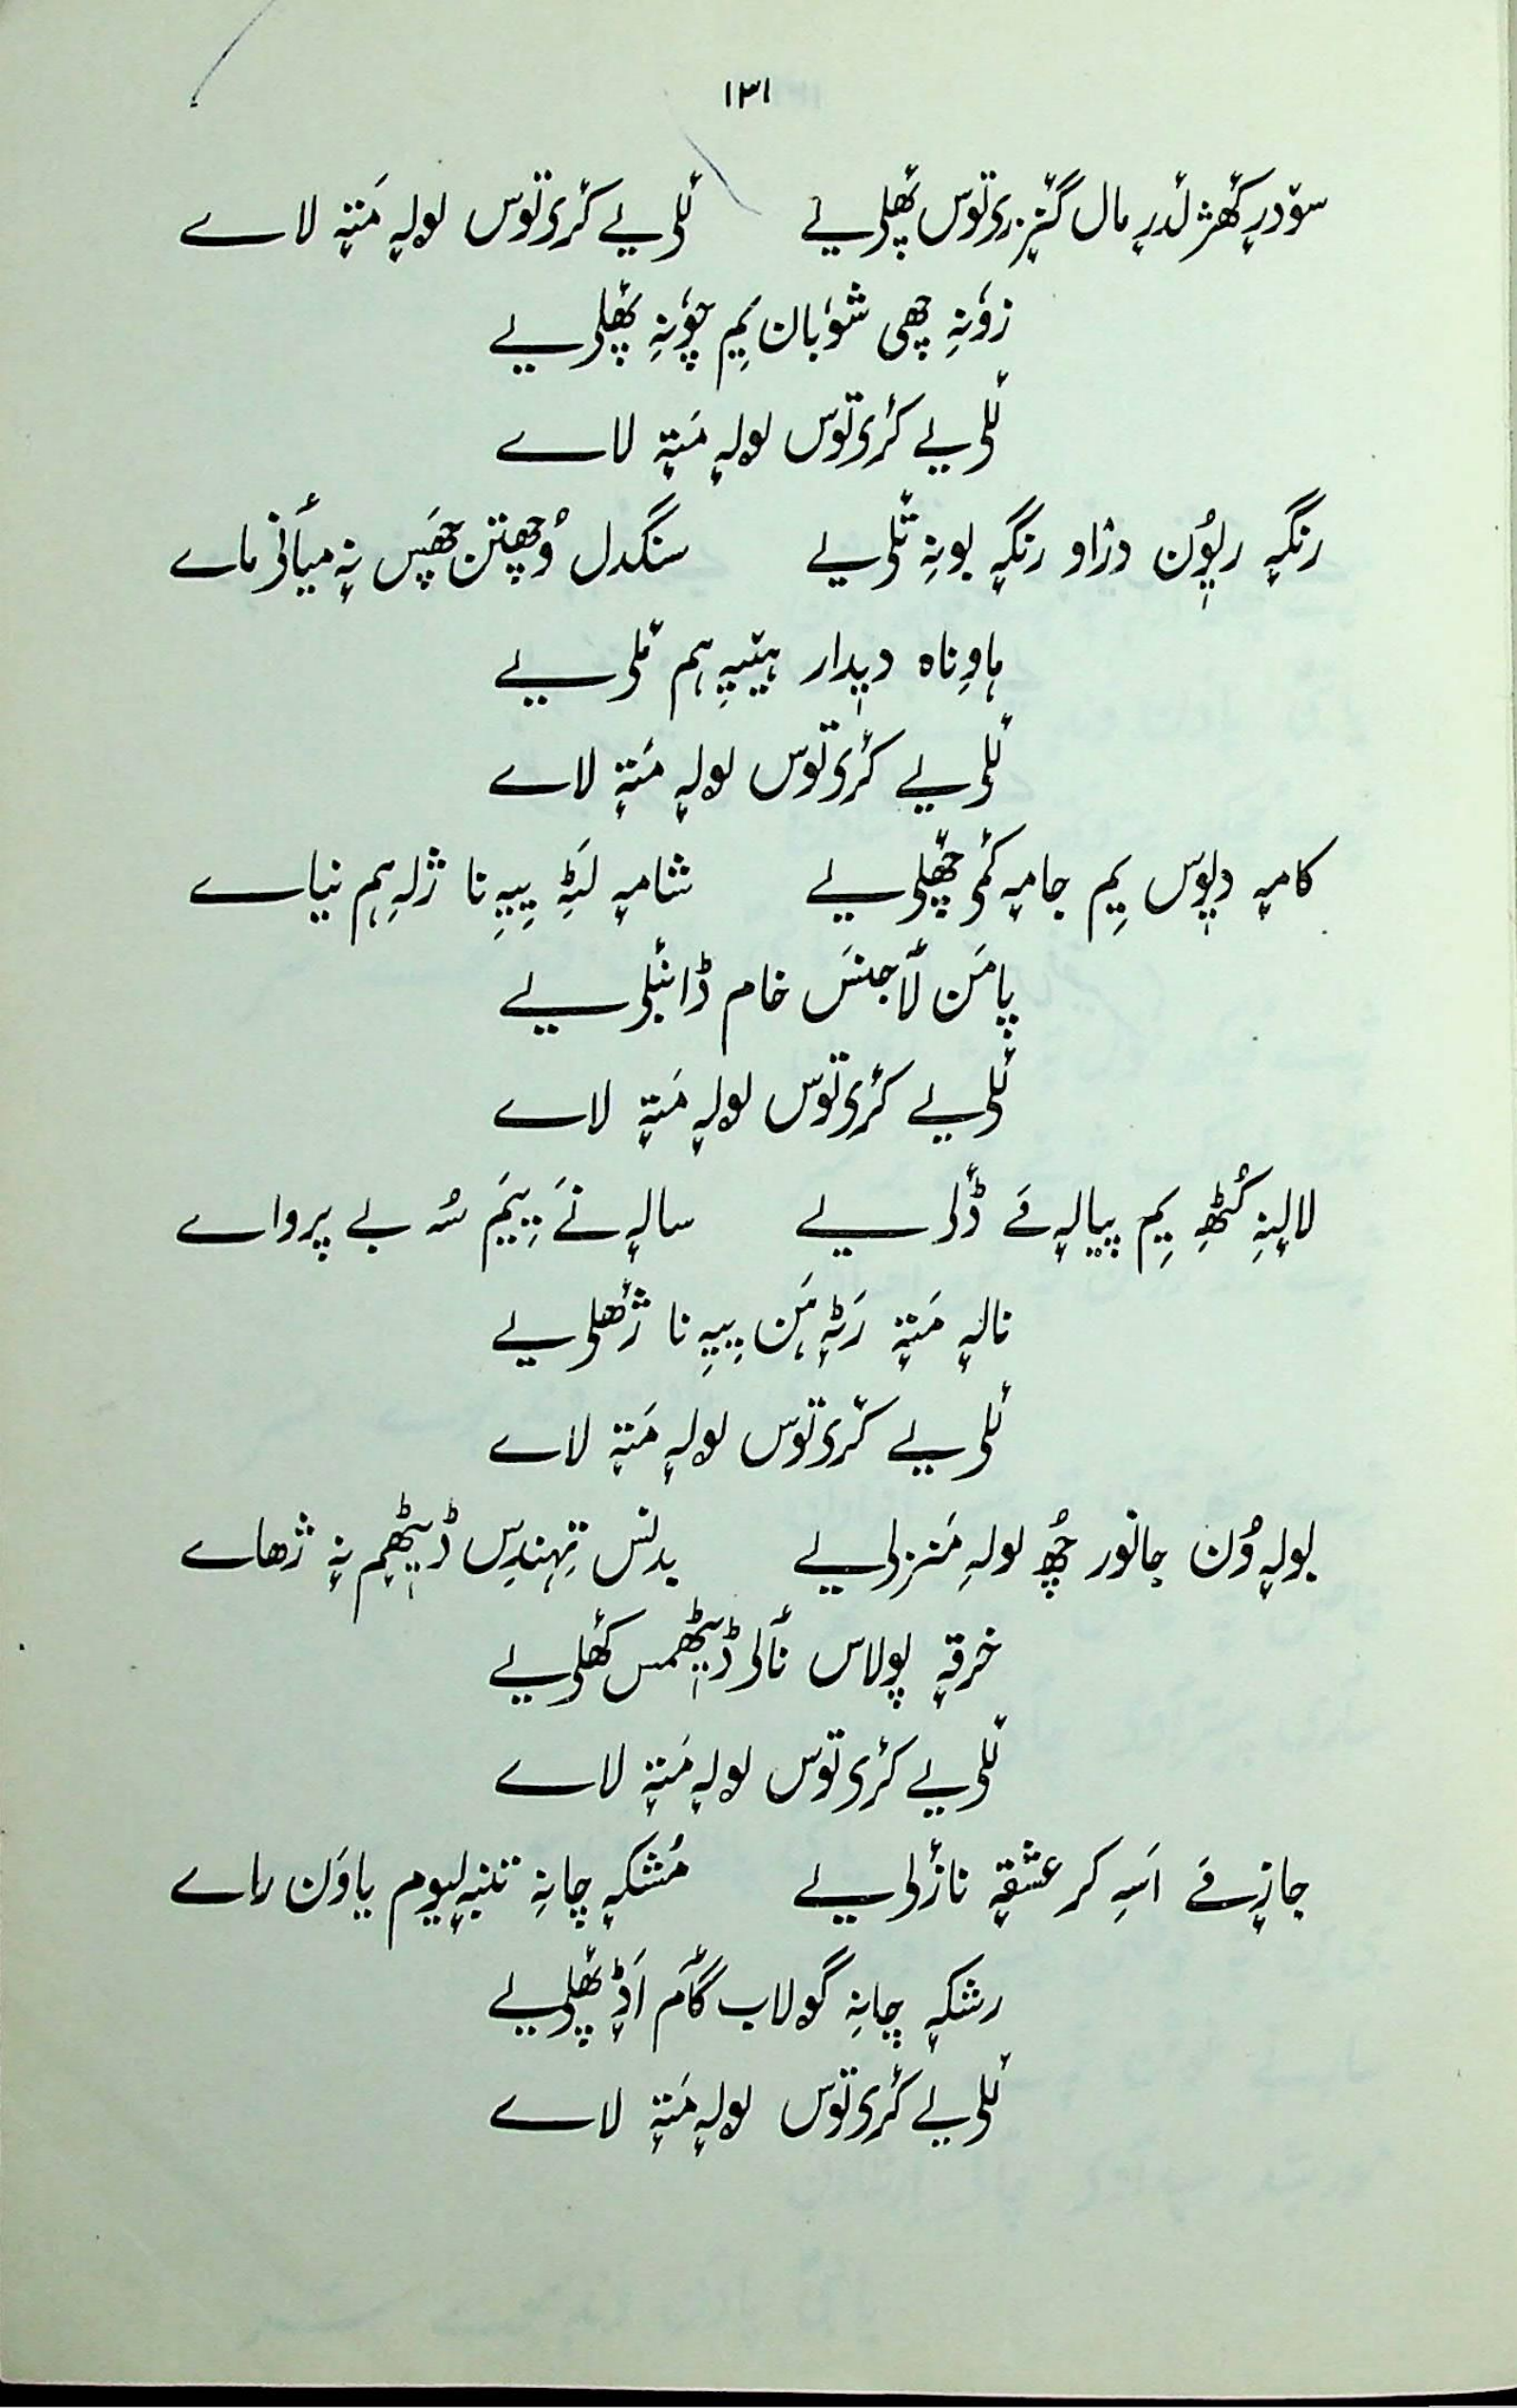 ۱۳۱
سۆدرٕ کھٔژ لٔدرٕ مال گنٔزرٕی توس پھٔلی یے نٔلی یے کٔری توس لولہٕ مَتہٕ لاے
زوٗنہِ چھی شوٗبان یِم چوٗنہِ پھٔلی یے
نٔلی یے کٔری توس لولہٕ مَتہٕ لاے
رنگہٕ رٕیوٗن دزاو رنگہٕ بونہِ تٔلی یے سنگدل وُچھتن چھَس نہٕ میٲنی ماے
ہاوِناہ دیٖدار ہیٚیہِ ہم مٔلی یے
نٔلی یے کٔری توس لولہٕ مَتہٕ لاے
کامہٕ دیٖوَس یِم جامہٕ کٔمی چھٔلی یے شامہٕ لَٹہِ یِیہِ نا ژلہِ ہم نیاے
پامَن لٲجنَس خام ڈانٛبلی یے
نٔلی یے کٔری توس لولہٕ مَتہٕ لاے
لالہٕنہِ کُٹھِ یِم پیالہٕ مَے ڈٔلی یے سالہٕ نَے یِیَم سُہ بے پرواے
نالہٕ مَتہٕ رَٹہٕ ہَن یِیہِ نا ژٔھلی یے
نٔلی یے کٔری توس لولہٕ مَتہٕ لاے
بولہٕ وُن جانور چُھ لولہِ مَنزلی یے بدنس تِہندِس ڈیٖٹھِم نہٕ ژھاے
خرقہٕ پولاس نٲلی ڈیٖٹھمس کھٔلی یے
نٔلی یے کٔری توس لولہٕ مَتہٕ لاے
جانہٕ مَے اَسہِ کر عشقہٕ نازٔلی یے مُشکہٕ چانہِ تنبہٕ لیوم یاوَن راے
رشکہٕ چانہِ گولاب گٲم اَڈٕ پھٔلی یے
نٔلی یے کٔری توس لولہٕ مَتہٕ لاے